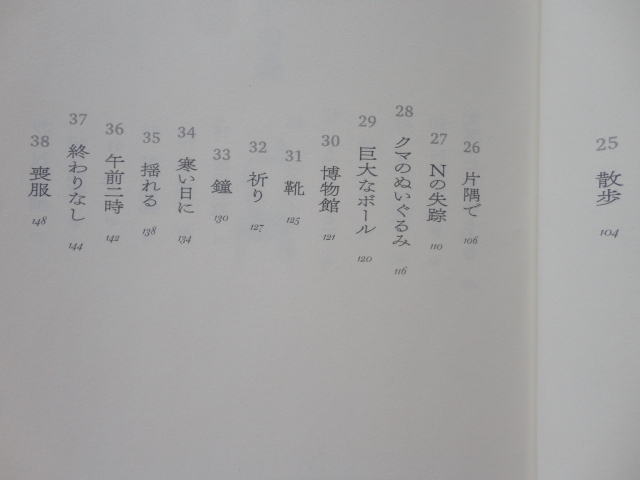 25 散歩 104
26 片隅で 106
27 Nの失踪 110
28 クマのぬいぐるみ 116
29 巨大なボール 120
30 博物館 121
31 靴 125
32 祈り 127
33 鐘 130
34 寒い日に 134
35 揺れる 138
36 午前二時 142
37 終わりなし 144
38 喪服 148